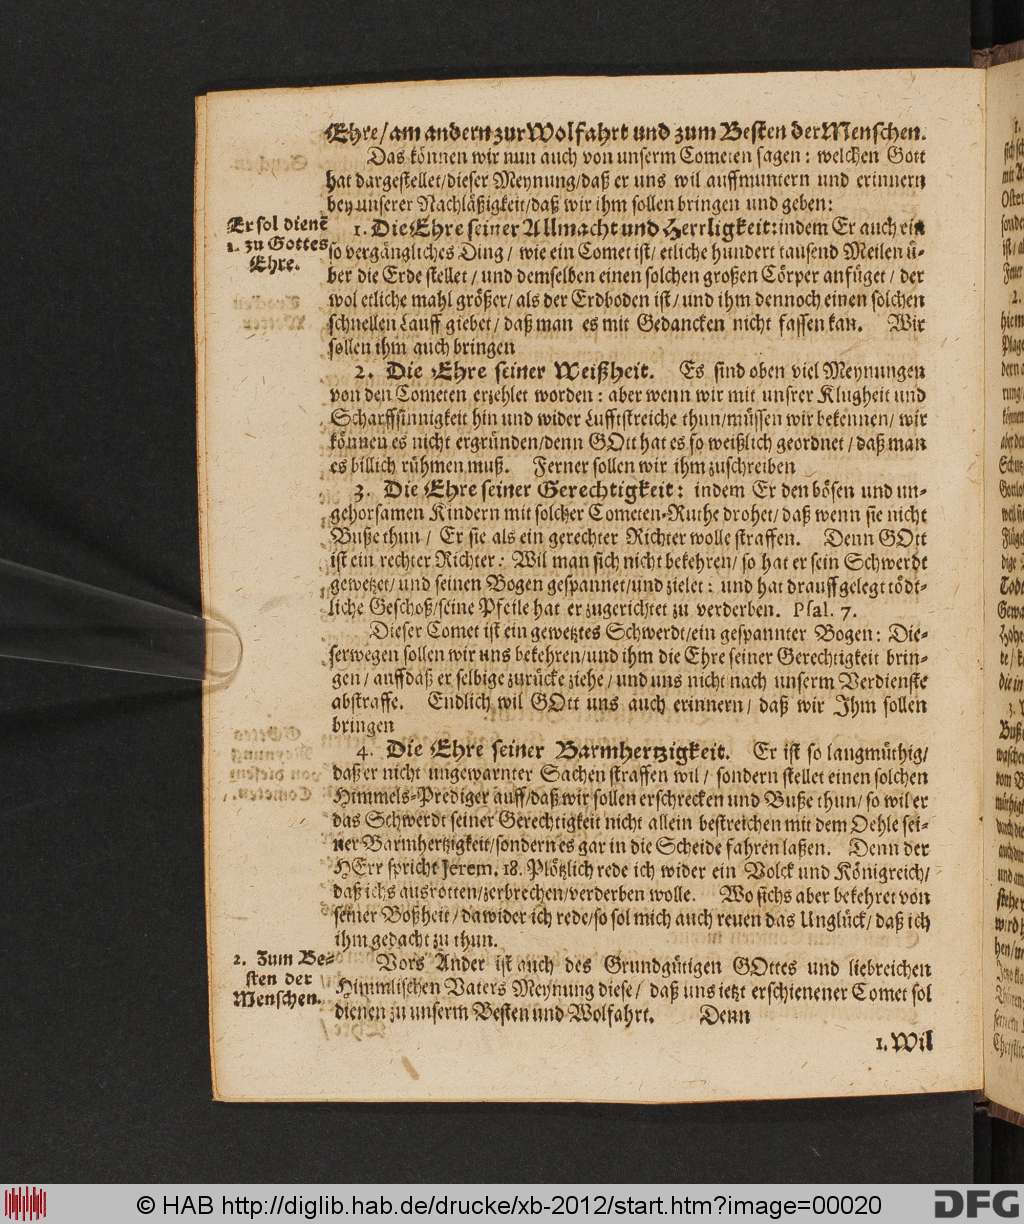 Ehre/ am andern zur Wolfahrt und zum Besten der Menschen.
Das können wir nun auch von unserm Cometen sagen: welchen Gott
hat dargestellet/dieser Meynung/daß er uns wil auffmuntern und erinnern
bey unserer Nachläßigkeit/daß wir ihm sollen bringen und geben:
Er sol dienẽ
1. zu Gottes
Ehre.
1. Die Ehre seiner Allmacht und Herrligkeit: indem Er auch ein
so vergängliches Ding/ wie ein Comet ist/ etliche hundert tausend Meilen ü-
ber die Erde stellet/ und demselben einen solchen großen Cörper anfüget/ der
wol etliche mahl größer/ als der Erdboden ist/ und ihm dennoch einen solchen
schnellen Lauff giebet/ daß man es mit Gedancken nicht fassen kan. Wir
sollen ihm auch bringen
2. Die Ehre seiner Weißheit. Es sind oben viel Meynungen
von den Cometen erzehlet worden: aber wenn wir mit unsrer Klugheit und
Scharffsinnigkeit hin und wider Lufftstreiche thun/müssen wir bekennen/ wir
können es nicht ergründen/denn GOtt hat es so weißlich geordnet/ daß man
es billich rühmen muß. Ferner sollen wir ihm zuschreiben
3. Die Ehre seiner Gerechtigkeit: indem Er den bösen und un-
gehorsamen Kindern mit solcher Cometen-Ruthe drohet/ daß wenn sie nicht
Buße thun/ Er sie als ein gerechter Richter wolle straffen. Denn GOtt
ist ein rechter Richter: Wil man sich nicht bekehren/ so hat er sein Schwerdt
gewetzet/ und seinen Bogen gespannet/und zielet: und hat drauff gelegt tödt-
liche Geschoß/seine Pfeile hat er zugerichtet zu verderben. Psal. 7.
Dieser Comet ist ein gewetztes Schwerdt/ein gespannter Bogen: Die-
serwegen sollen wir uns bekehren/und ihm die Ehre seiner Gerechtigkeit brin-
gen/ auffdaß er selbige zurücke ziehe/ und uns nicht nach unserm Verdienste
abstraffe. Endlich wil GOtt uns auch erinnern/ daß wir Ihm sollen
bringen
4. Die Ehre seiner Barmhertzigkeit. Er ist so langmüthig/
daß er nicht ungewarnter Sachen straffen wil/ sondern stellet einen solchen
Himmels-Prediger auff/daß wir sollen erschrecken und Buße thun/ so wil er
das Schwerdt seiner Gerechtigkeit nicht allein bestreichen mit dem Oehle sei-
ner Barmhertzigkeit/sondern es gar in die Scheide fahren laßen. Denn der
HErr spricht Jerem. 18. Plötzlich rede ich wider ein Volck und Königreich/
daß ichs ausrotten/zerbrechen/verderben wolle. Wo sichs aber bekehret von
seiner Boßheit/ dawider ich rede/so sol mich auch reuen das Unglück/ daß ich
ihm gedacht zu thun.
2. Zum Be-
sten der
Menschen.
Vors Ander ist auch des Grundgütigen GOttes und liebreichen
Himmlischen Vaters Meynung diese/ daß uns ietzt erschienener Comet sol
dienen zu unserm Besten und Wolfahrt. Denn
1. Wil
© HAB http://diglib.hab.de/drucke/xb-2012/start.htm?image=00020
DFG